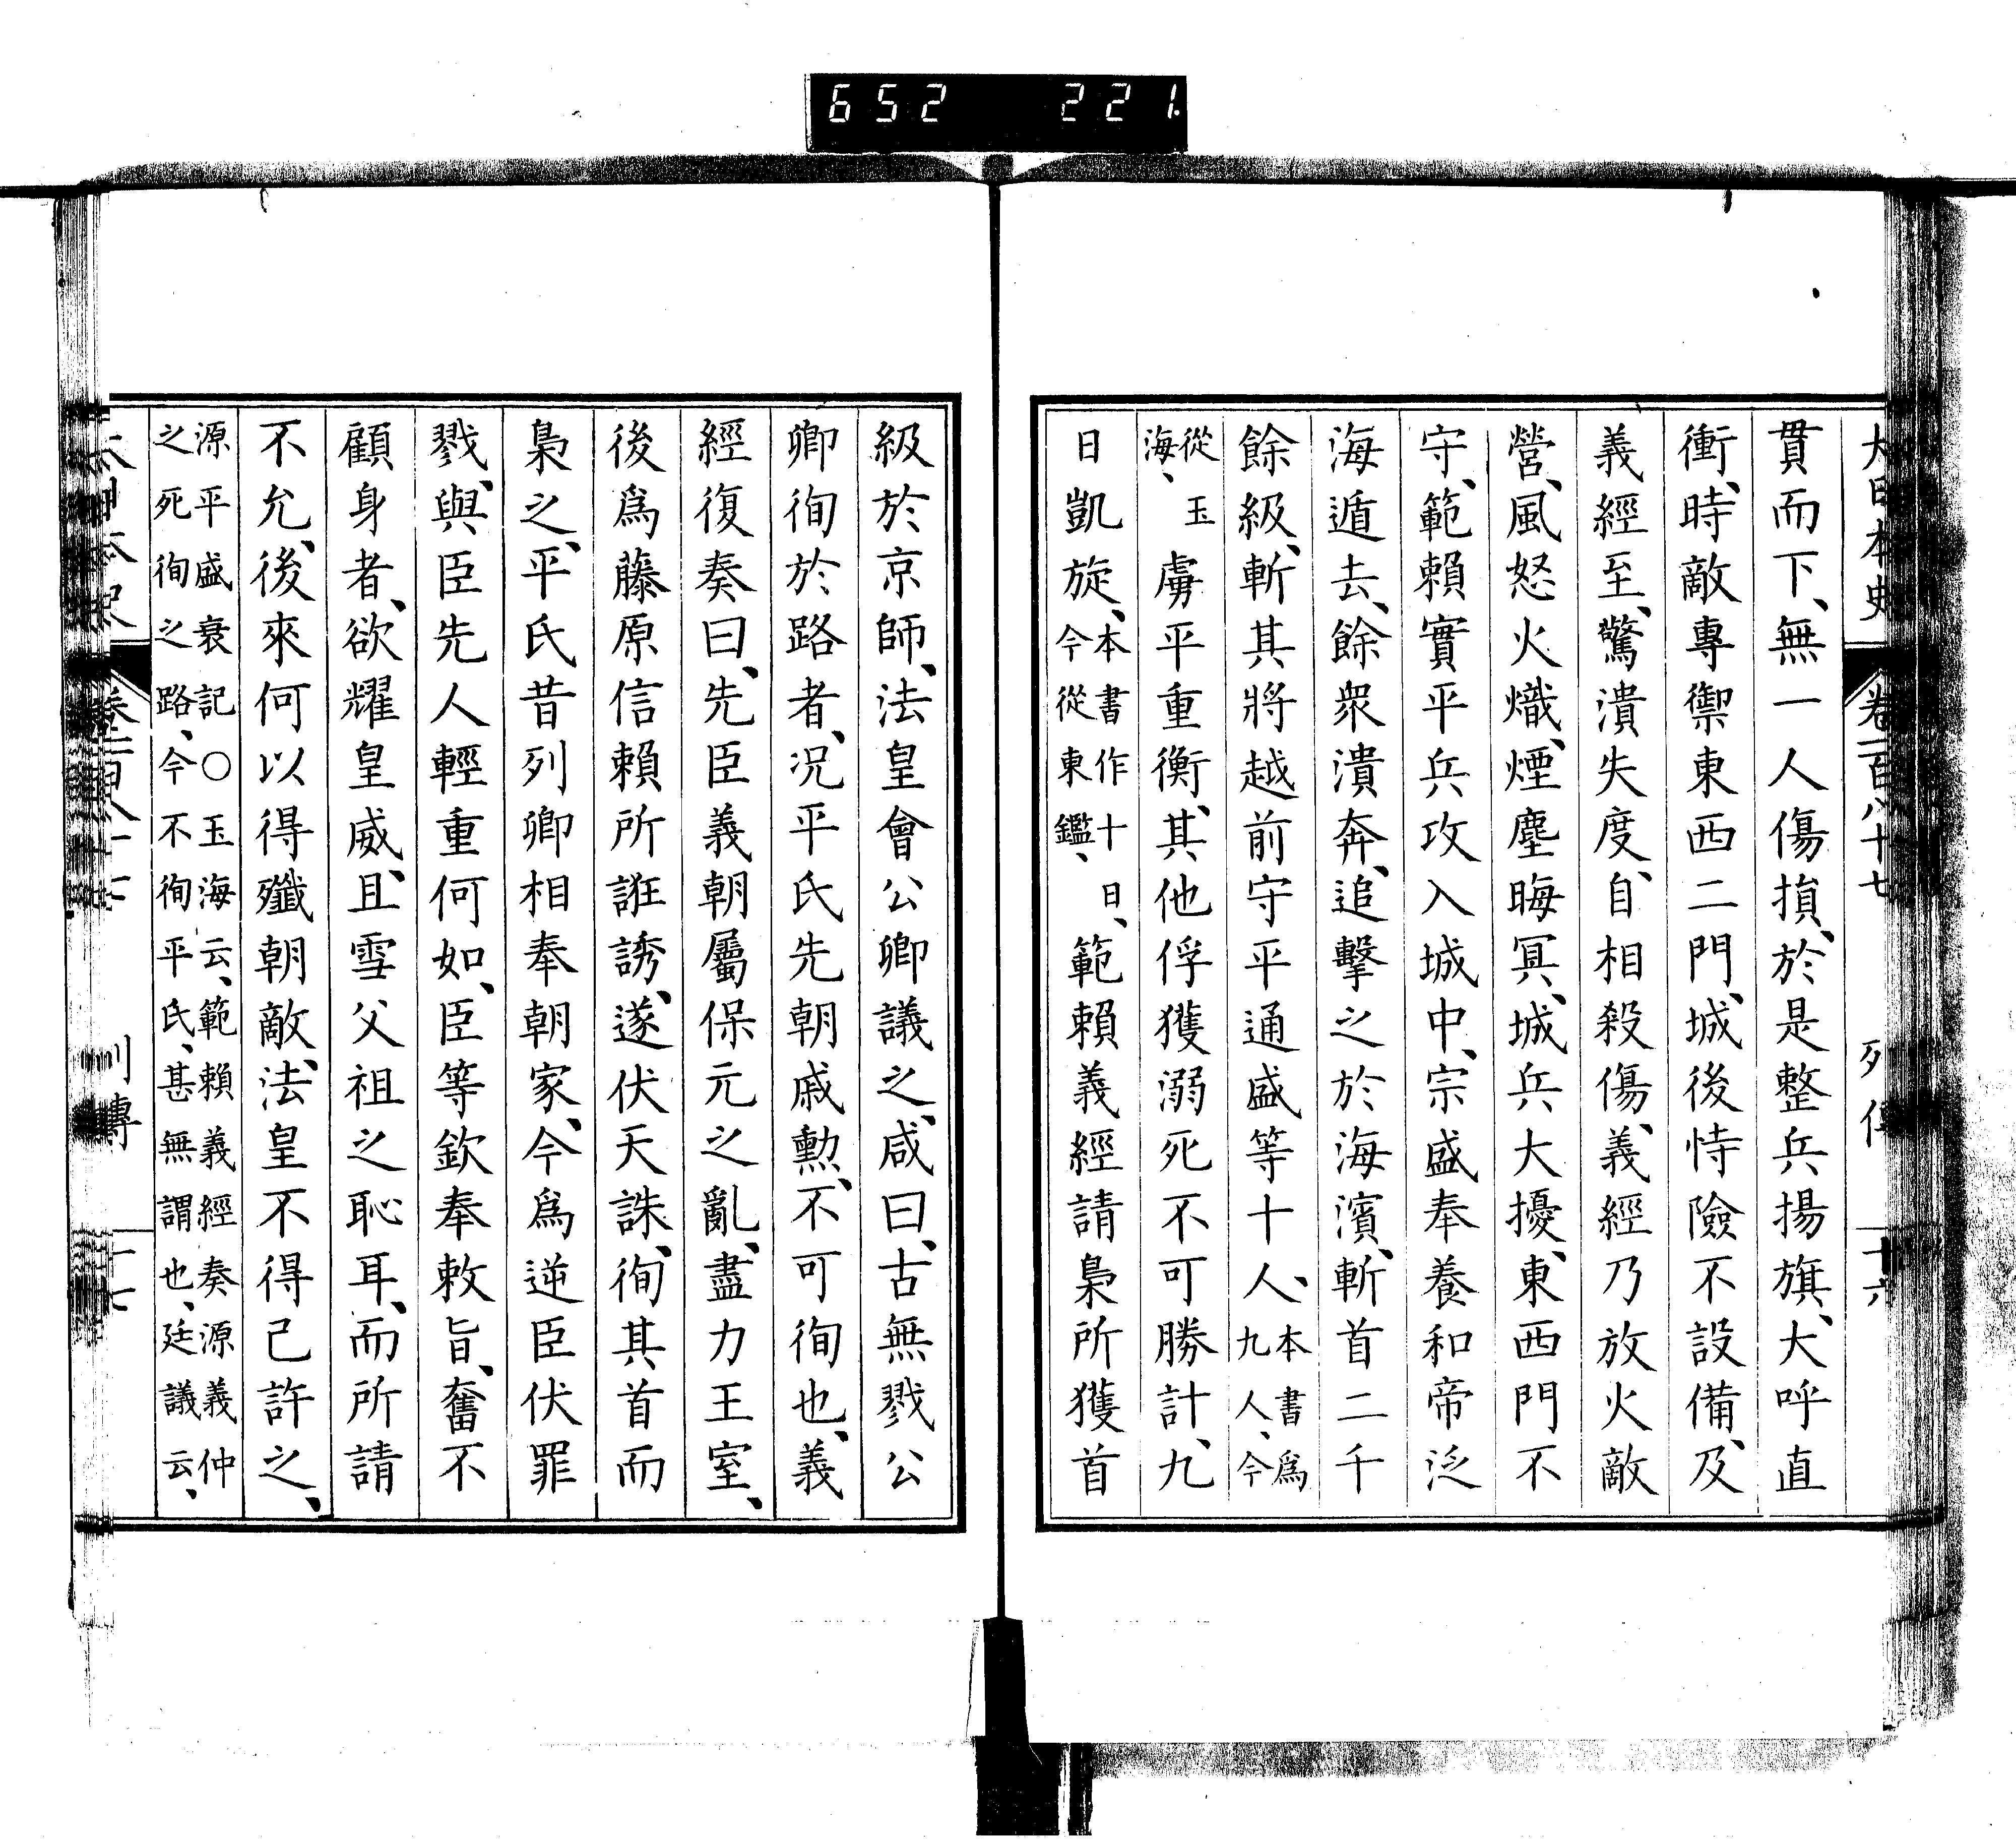 652 221
大日本史 卷一百八十七 列傳 十六
貫而下、無一人傷損、於是整兵揚旗、大呼直
衝、時敵專禦東西二門、城後恃險不設備、及
義經至、驚潰失度、自相殺傷、義經乃放火敵
營、風怒火熾、煙塵晦冥、城兵大擾、東西門不
守、範賴實平兵攻入城中、宗盛奉養和帝泛
海遁去、餘衆潰奔、追擊之於海濱、斬首二千
餘級、斬其將越前守平通盛等十人、本書爲九人、今
從玉海、虜平重衡、其他俘獲溺死不可勝計、九
日凱旋、本書作十日、今從東鑑、範賴義經請梟所獲首
級於京師、法皇會公卿議之、咸曰、古無戮公
卿徇於路者、况平氏先朝戚勳、不可徇也、義
經復奏曰、先臣義朝屬保元之亂、盡力王室、
後爲藤原信賴所誑誘、遂伏天誅、徇其首而
梟之、平氏昔列卿相奉朝家、今爲逆臣伏罪
戮、與臣先人輕重何如、臣等欽奉敕旨、奮不
顧身者、欲耀皇威、且雪父祖之恥耳、而所請
不允、後來何以得殲朝敵、法皇不得已許之、
源平盛衰記○玉海云、範賴義經奏源義仲
之死徇之路、今不徇平氏、甚無謂也、廷議云、
列傳